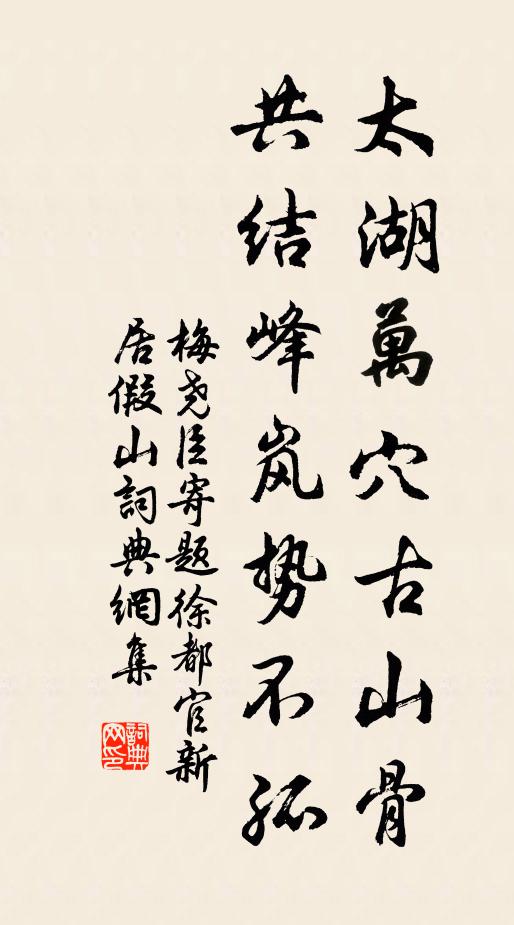 太湖萬穴古山骨
共结峰岚势不孤
梅尧臣寄题徐都官新
居假山詞典網集
詞典
网印